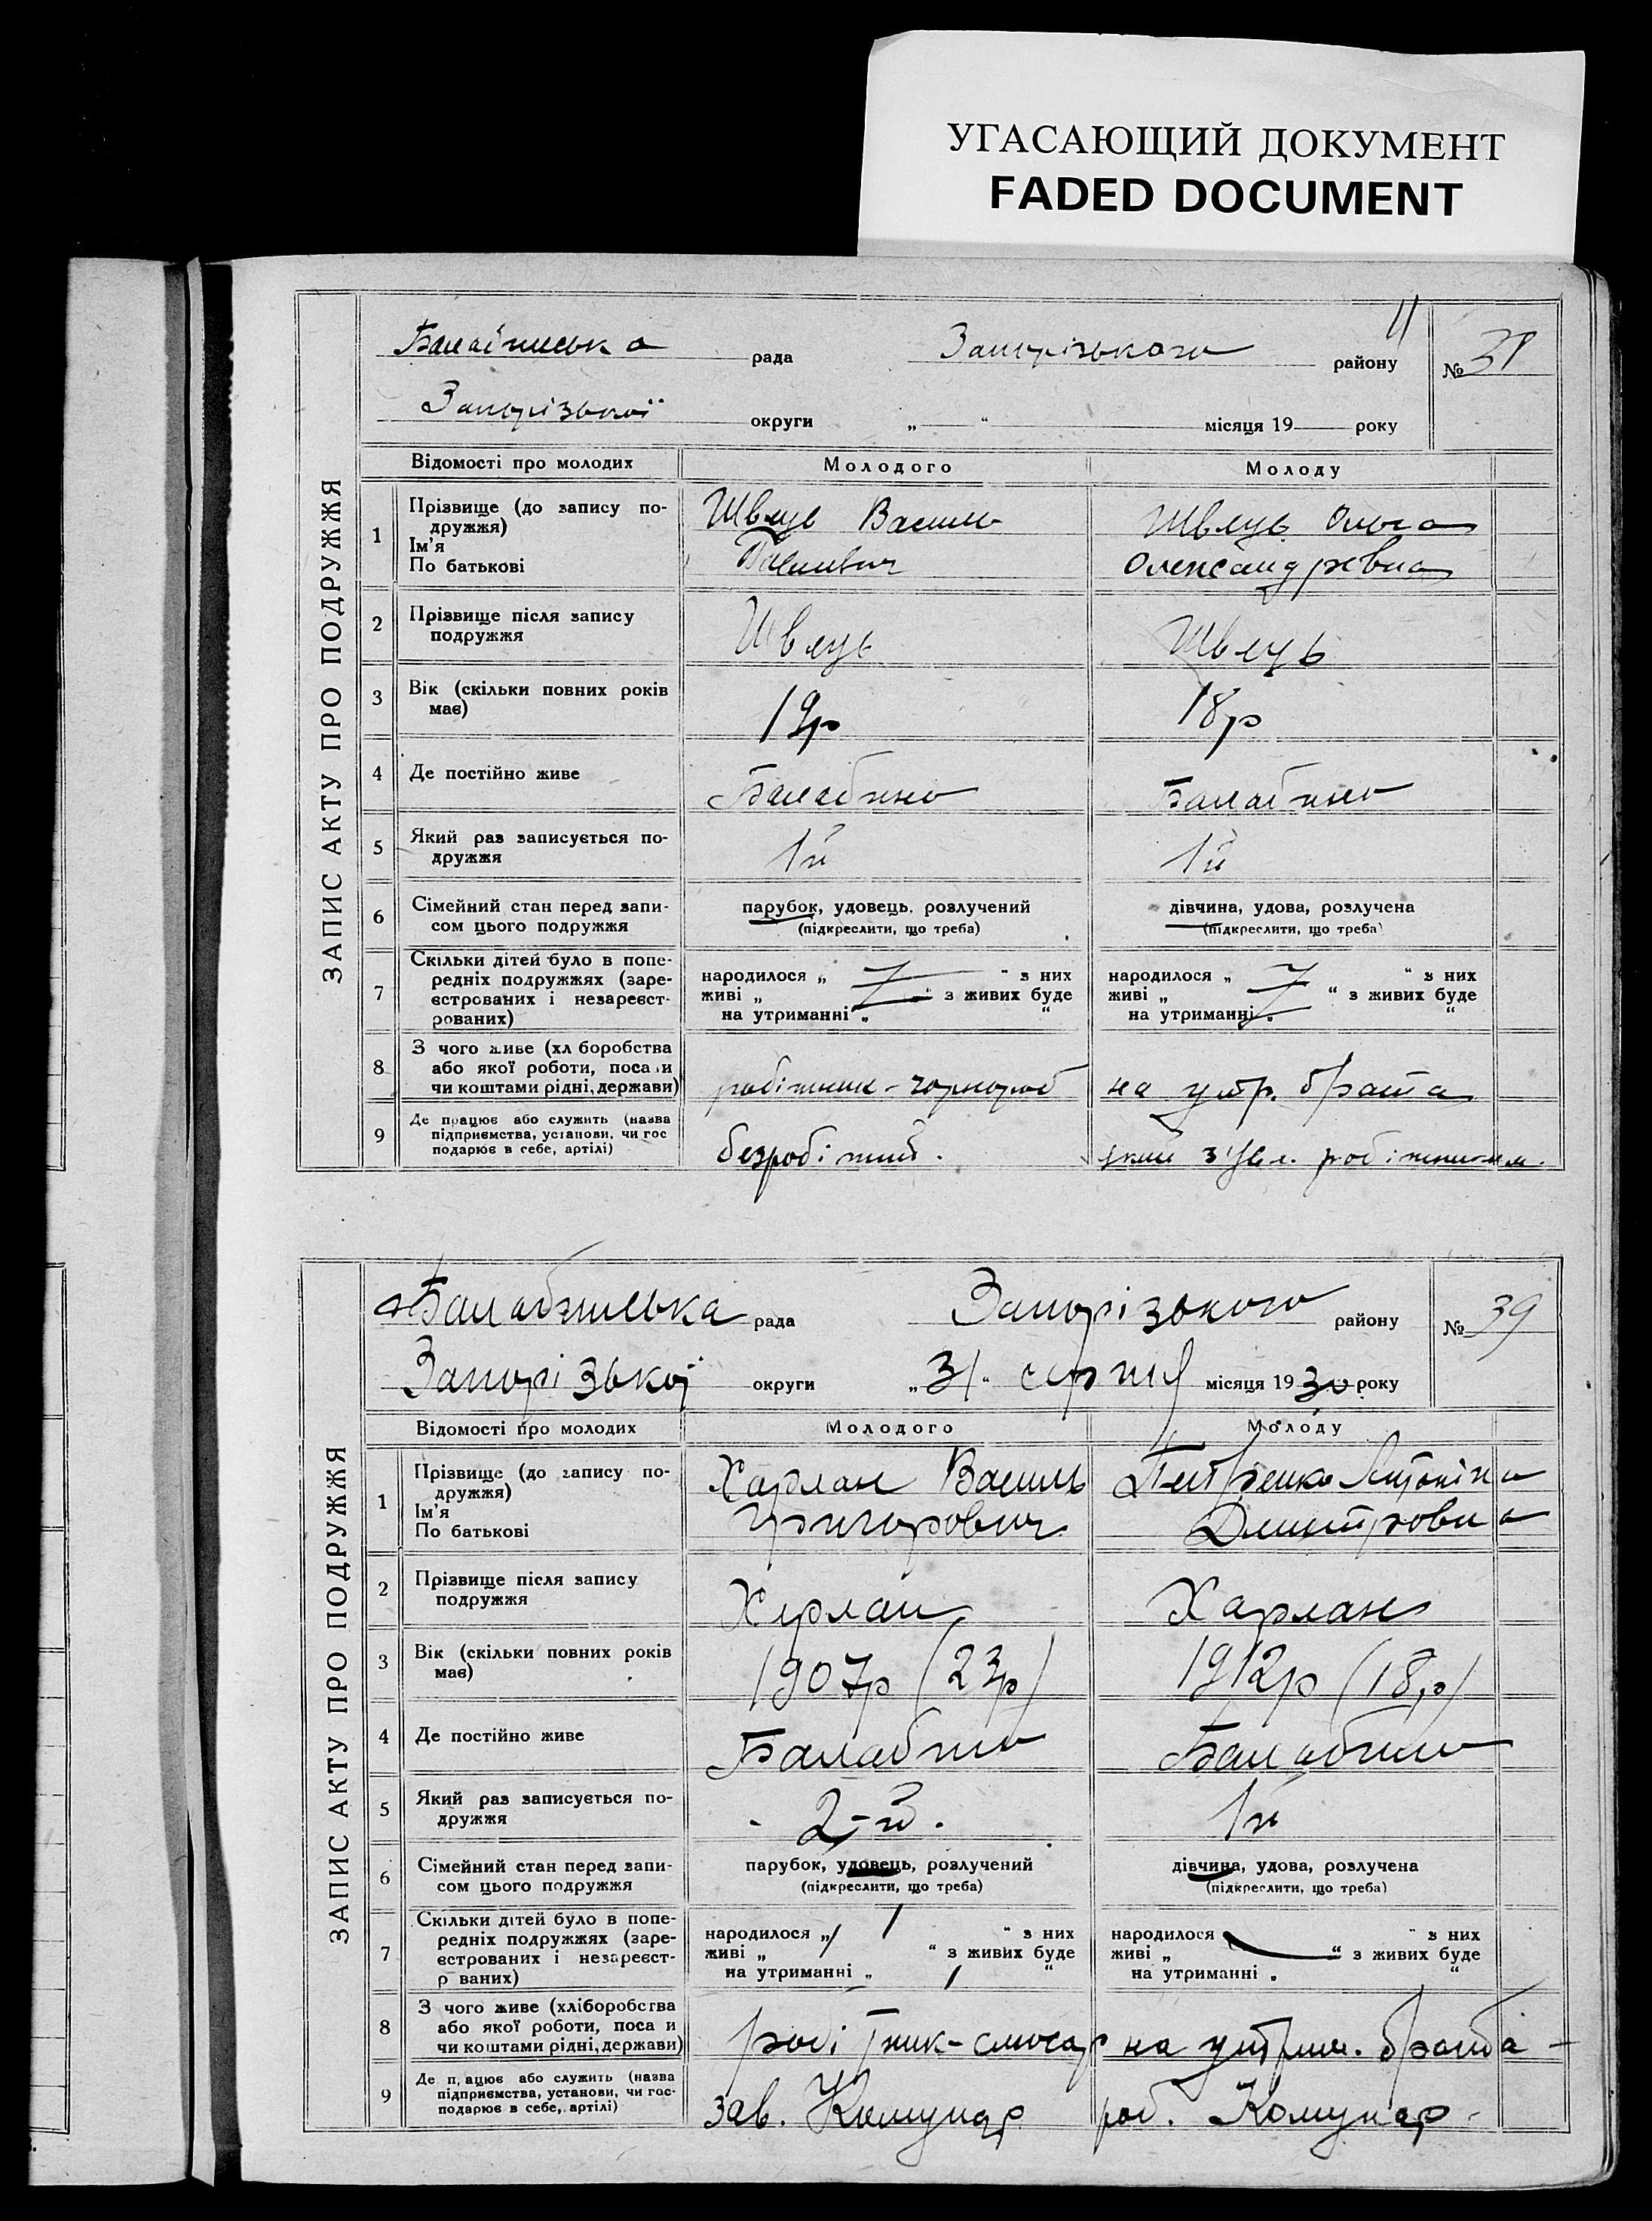 УГАСАЮЩИЙ ДОКУМЕНТ
FADED DOCUMENT
ЗАПИС АКТУ ПРО ПОДРУЖЖЯ
рада Запорізького району № 38
Запорізької округи „ “ місяця 19 року
Відомості про молодих Молодого Молоду
1 Прізвище (до запису по-
дружжя)
Ім'я
По батькові
Швець Василь
Швець Ольга
Олександрівна
2 Прізвище після запису
подружжя
Швець Швець
3 Вік (скільки повних років
має)
19р 18р
4 Де постійно живе Балабино Балабино
5 Який раз записується по-
дружжя
1й 1й
6 Сімейний стан перед запи-
сом цього подружжя
парубок, удовець, розлучений
(підкреслити, що треба)
дівчина, удова, розлучена
(підкреслити, що треба)
7 Скільки дітей було в попе-
редніх подружжях (заре-
єстрованих і незареєст-
рованих)
народилося „ “ з них
живі „ “ з живих буде
на утриманні „ “
народилося „ “ з них
живі „ “ з живих буде
на утриманні „ “
8 З чого живе (хл боробства
або якої роботи, поса и
чи коштами рідні, держави)
робітник - чорнороб на утр. брата
9 Де працює або служить (назва
підприємства, установи, чи гос
подарює в себе, артілі)
безробітний. робітником.
ЗАПИС АКТУ ПРО ПОДРУЖЖЯ
Балабинська рада Запорізького району № 39
Запорізької округи „31“ серпня місяця 1930 року
Відомості про молодих Молодого Молоду
1 Прізвище (до запису по-
дружжя)
Ім'я
По батькові
Харлан Василь
Григорович
Петренко Антоніна
Дмитровна
2 Прізвище після запису
подружжя
Харлан Харлан
3 Вік (скільки повних років
має)
1907р (23р) 1912р (18р)
4 Де постійно живе Балабино Балабино
5 Який раз записується по-
дружжя
2-й. 1й
6 Сімейний стан перед запи-
сом цього подружжя
парубок, удовець, розлучений
(підкреслити, що треба)
дівчина, удова, розлучена
(підкреслити, що треба)
7 Скільки дітей було в попе-
редніх подружжях (заре-
єстрованих і незареєст-
р ваних)
народилося „ 1 “ з них
живі „ 1 “ з живих буде
на утриманні „ 1 “
народилося “ з них
живі „ “ з живих буде
на утриманні „ “
8 З чого живе (хліборобства
або якої роботи, поса и
чи коштами рідні, держави)
робітник-слюсар на утрим. брата -
9 Де п, ацює або служить (назва
підприємства, установи, чи гос-
подарює в себе, артілі)
зав. Комунар роб. Комунар -